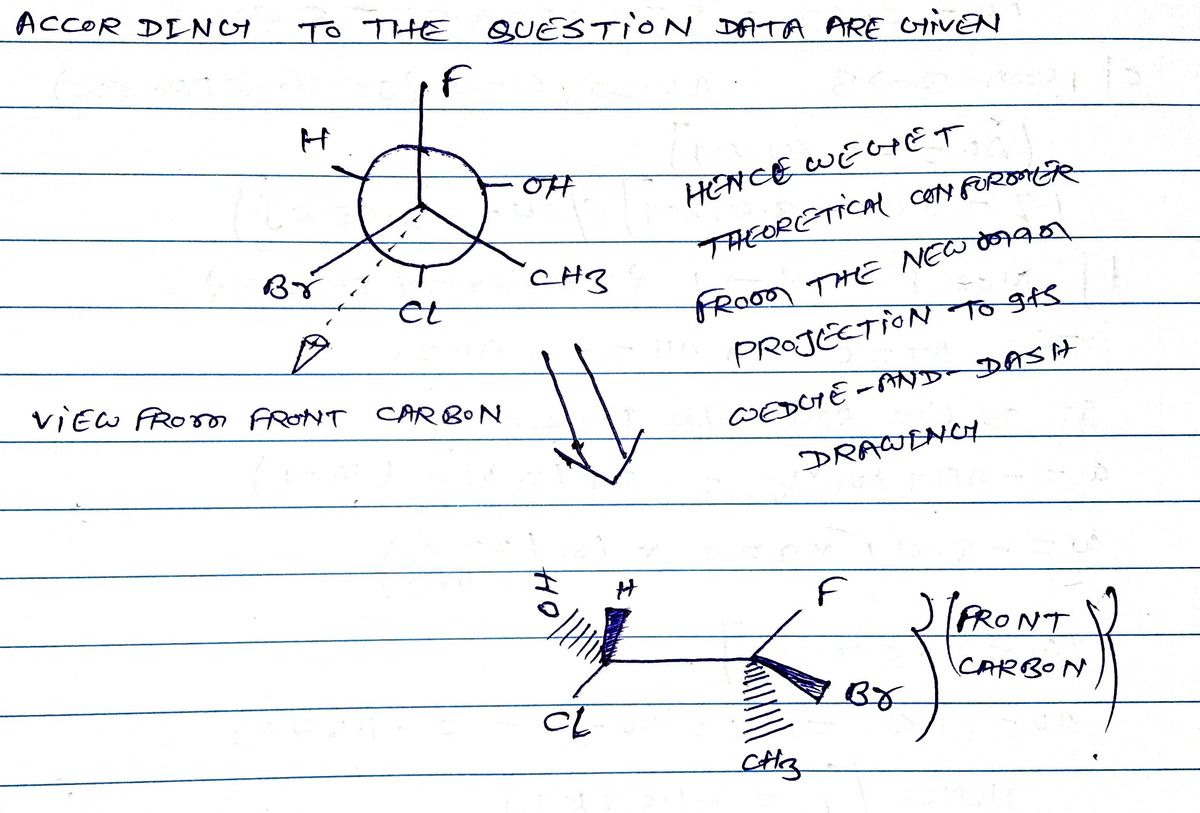 ACCORDING TO THE QUESTION DATA ARE GIVEN
F
H
OH
Br
CH3
CL
VIEW FROM FRONT CARBON
HENCE WE GET
THEORETICAL CONFORMER
FROM THE NEWMAN
PROJECTION TO ITS
WEDGE-AND-DASH
DRAWING
OH
H
F
(FRONT
CARBON)
Br
CL
CH3